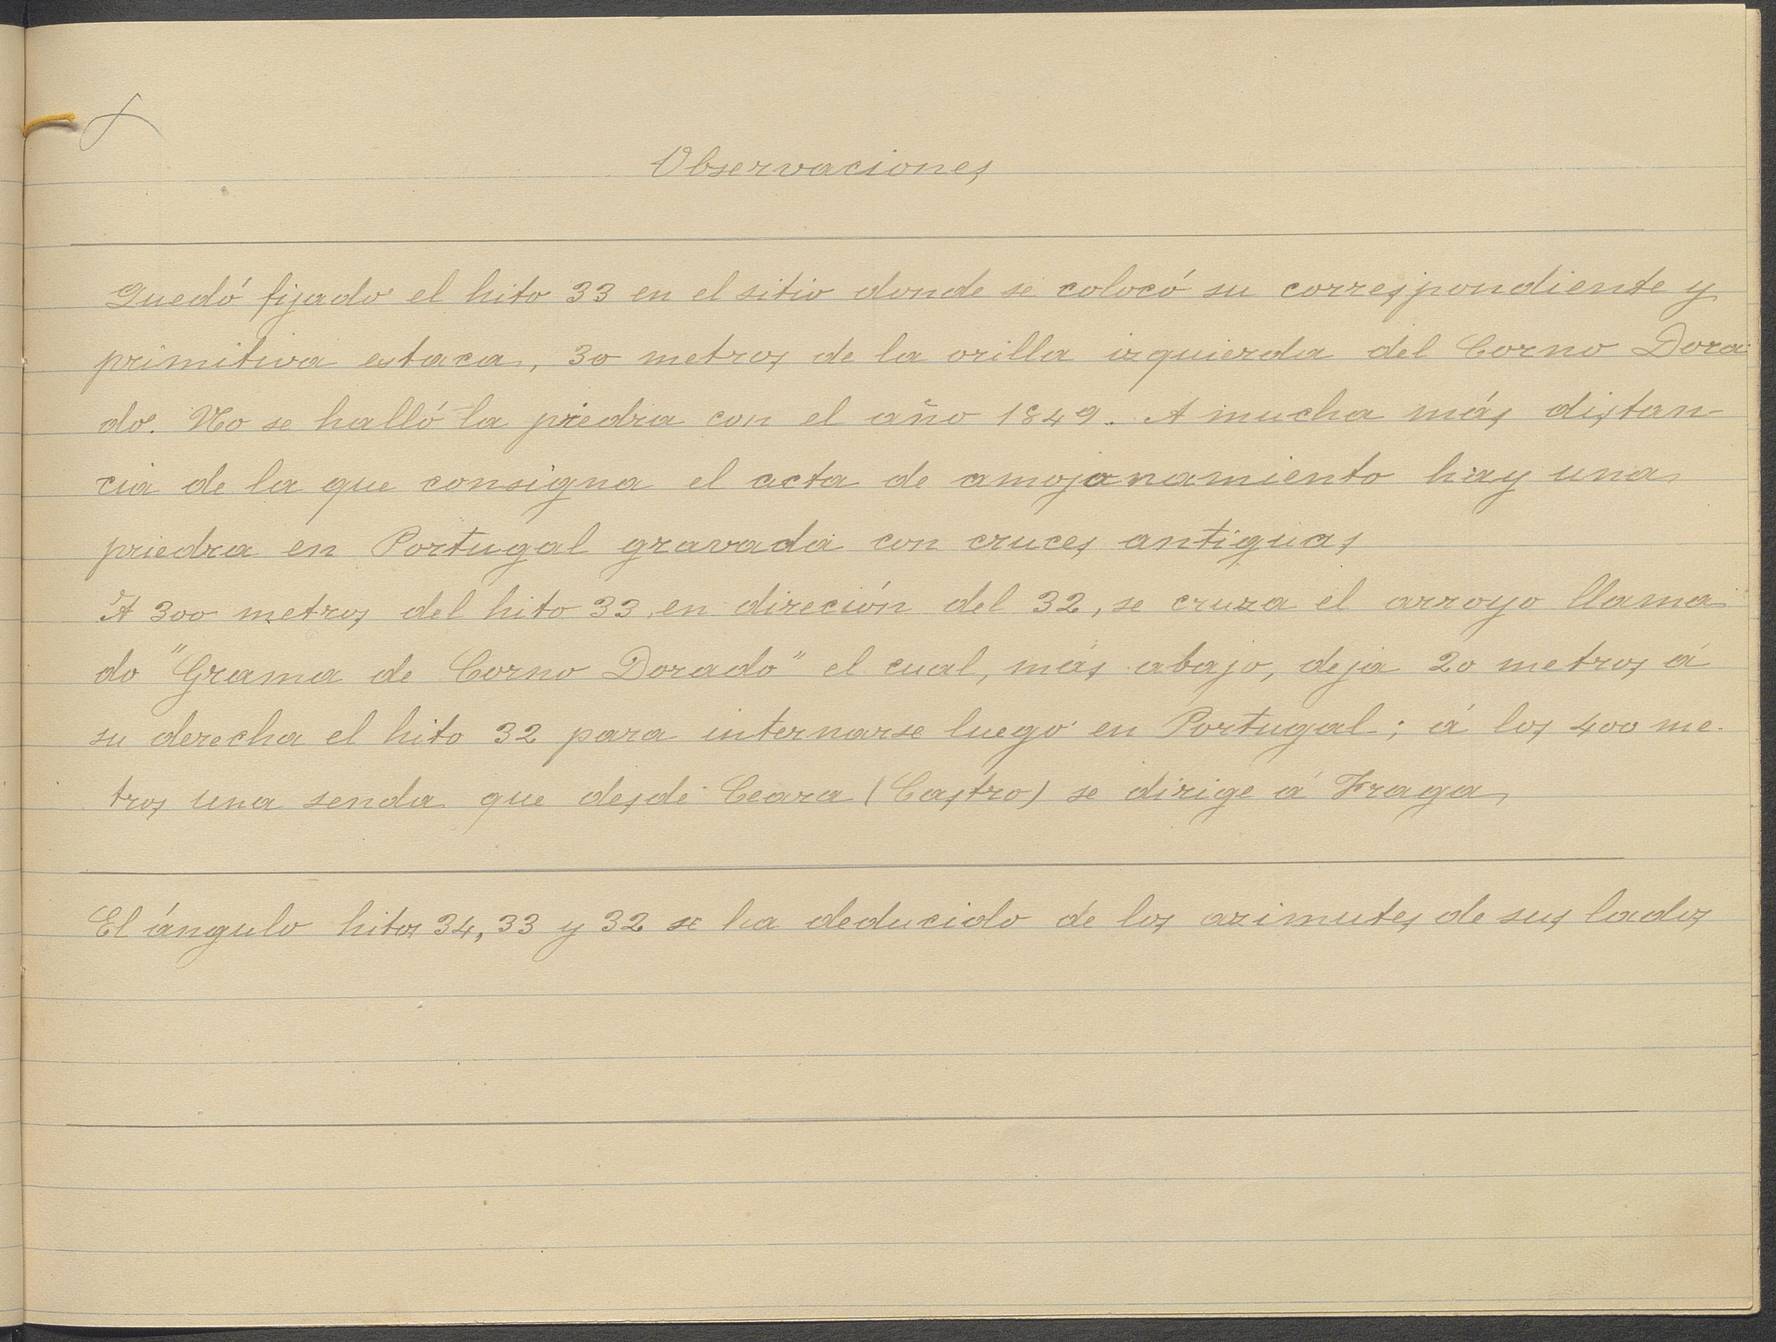 Observaciones
Quedó fijado el hito 33 en el sitio donde se colocó su correspondiente y
primitiva estaca, 30 metros de la orilla izquierda del Corno Dora-
do. No se halló la piedra con el año 1849. A mucha más distan-
cia de la que consigna el acta de amojonamiento hay una
piedra en Portugal gravada con cruces antiguas
A 300 metros del hito 33 en direción del 32, se cruza el arroyo llama
do "Grama de Corno Dorado" el cual, más abajo, deja 20 metros á
su derecha el hito 32 para internarse luego en Portugal; á los 400 me-
tros una senda que desde Ceara (Castro) se dirige á Fraga
El ángulo hitos 34, 33 y 32 se ha deducido de los azimutes de sus lados